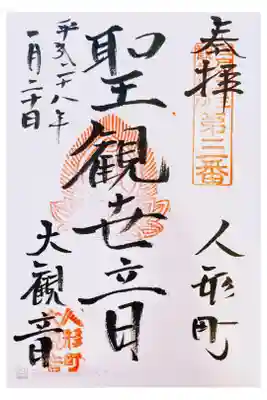 奉拝
第三番
人形町
聖観世音
大観音
人形町
平成二十八年
一月二十日